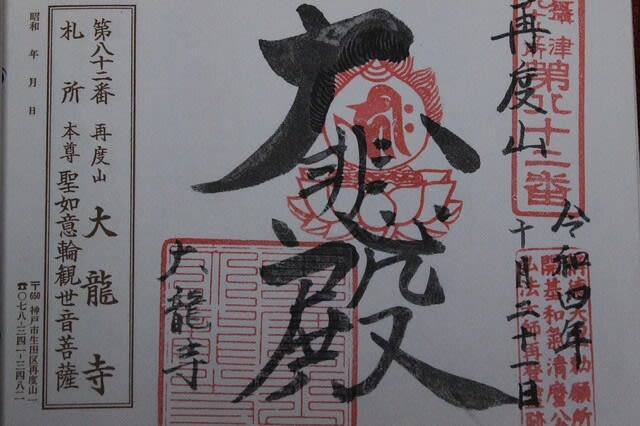 攝津
第八十二番
再度山
令和四年
十月三十一日
開基和氣清麿公
大悲殿
大龍寺
第八十二番
札所
再度山 大龍寺
本尊 聖如意輪観世音菩薩
〒650 神戸市生田区再度山一
☎〇七八-三四一-三四八二
昭和 年 月 日